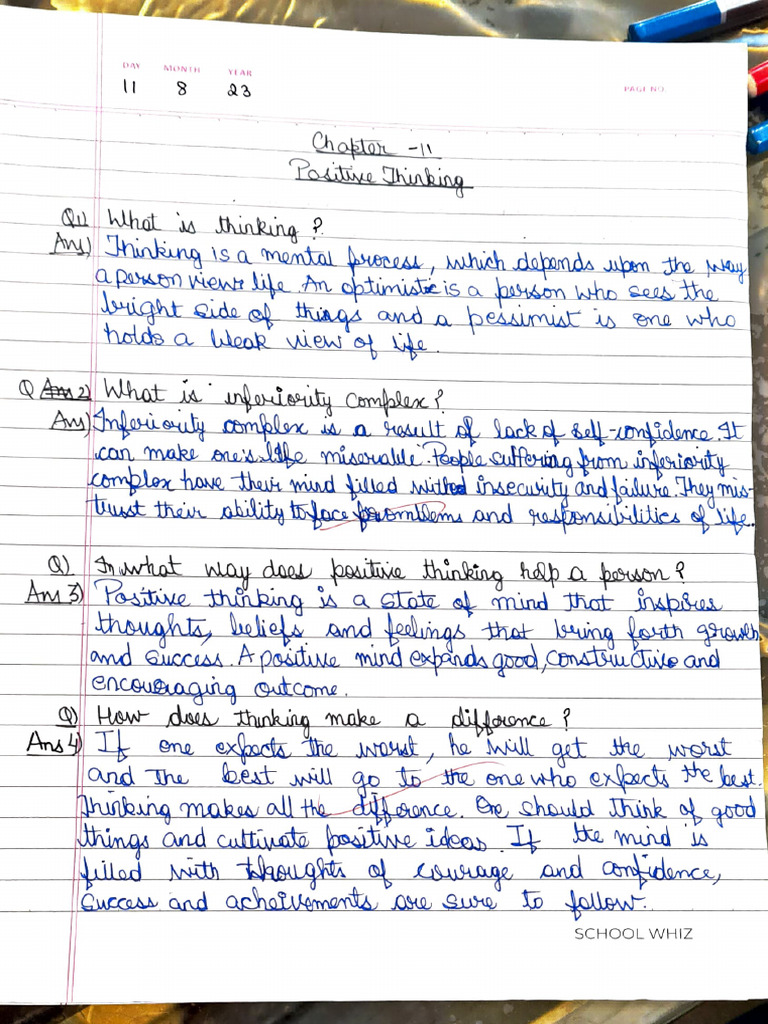 DAY MONTH YEAR
11 8 23
PAGE NO.
Chapter -11
Positive Thinking
Q1) What is thinking?
Ans) Thinking is a mental process, which depends upon the way
a person views life. An optimistic is a person who sees the
bright side of things and a pessimist is one who
holds a weak view of life.
Q Ans 2) What is inferiority complex?
Ans) Inferiority complex is a result of lack of self-confidence. It
can make one's life miserable. People suffering from inferiority
complex have their mind filled with insecurity and failure. They mis-
trust their ability to face problems and responsibilities of life.
Q) In what way does positive thinking help a person?
Ans 3) Positive thinking is a state of mind that inspires
thoughts, beliefs and feelings that bring forth growth
and success. A positive mind expands good, constructive and
encouraging outcome.
Q) How does thinking make a difference?
Ans 4) If one expects the worst, he will get the worst
and the best will go to the one who expects the best.
Thinking makes all the difference. One should think of good
things and cultivate positive ideas. If the mind is
filled with thoughts of courage and confidence,
success and acheivements are sure to follow.
SCHOOL WHIZ